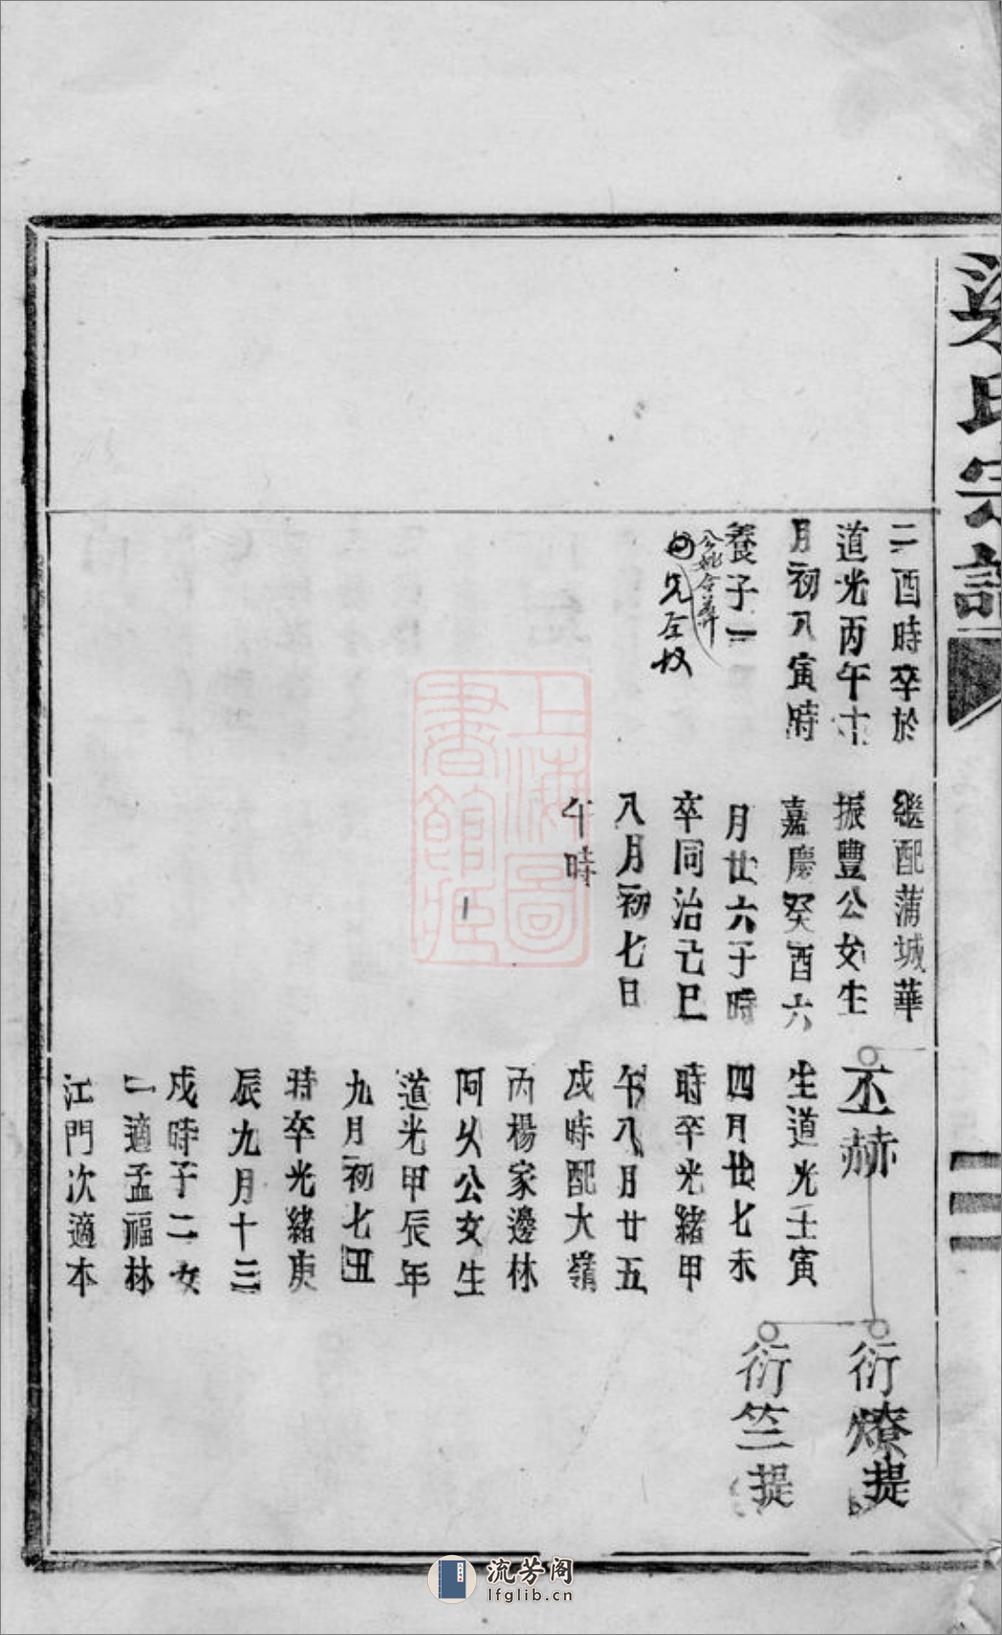 梁氏宗譜
二酉時卒於
道光丙午十
月初八寅時
養子一
公妣合葬
兄左坟
繼配蒲城華
振豐公女生
嘉慶癸酉六
月廿六子時
卒同治己巳
八月初七日
午時
丕赫
生道光壬寅
四月廿七未
時卒光緒甲
午八月廿五
戌時配大嶺
丙楊家邊林
阿从公女生
道光甲辰年
九月初七丑
時卒光緒庚
辰九月十三
戌時子二女
二適孟福林
江門次適本
衍燎提
衍竺提
上海圖書館藏
流芳阁
lfglib.cn